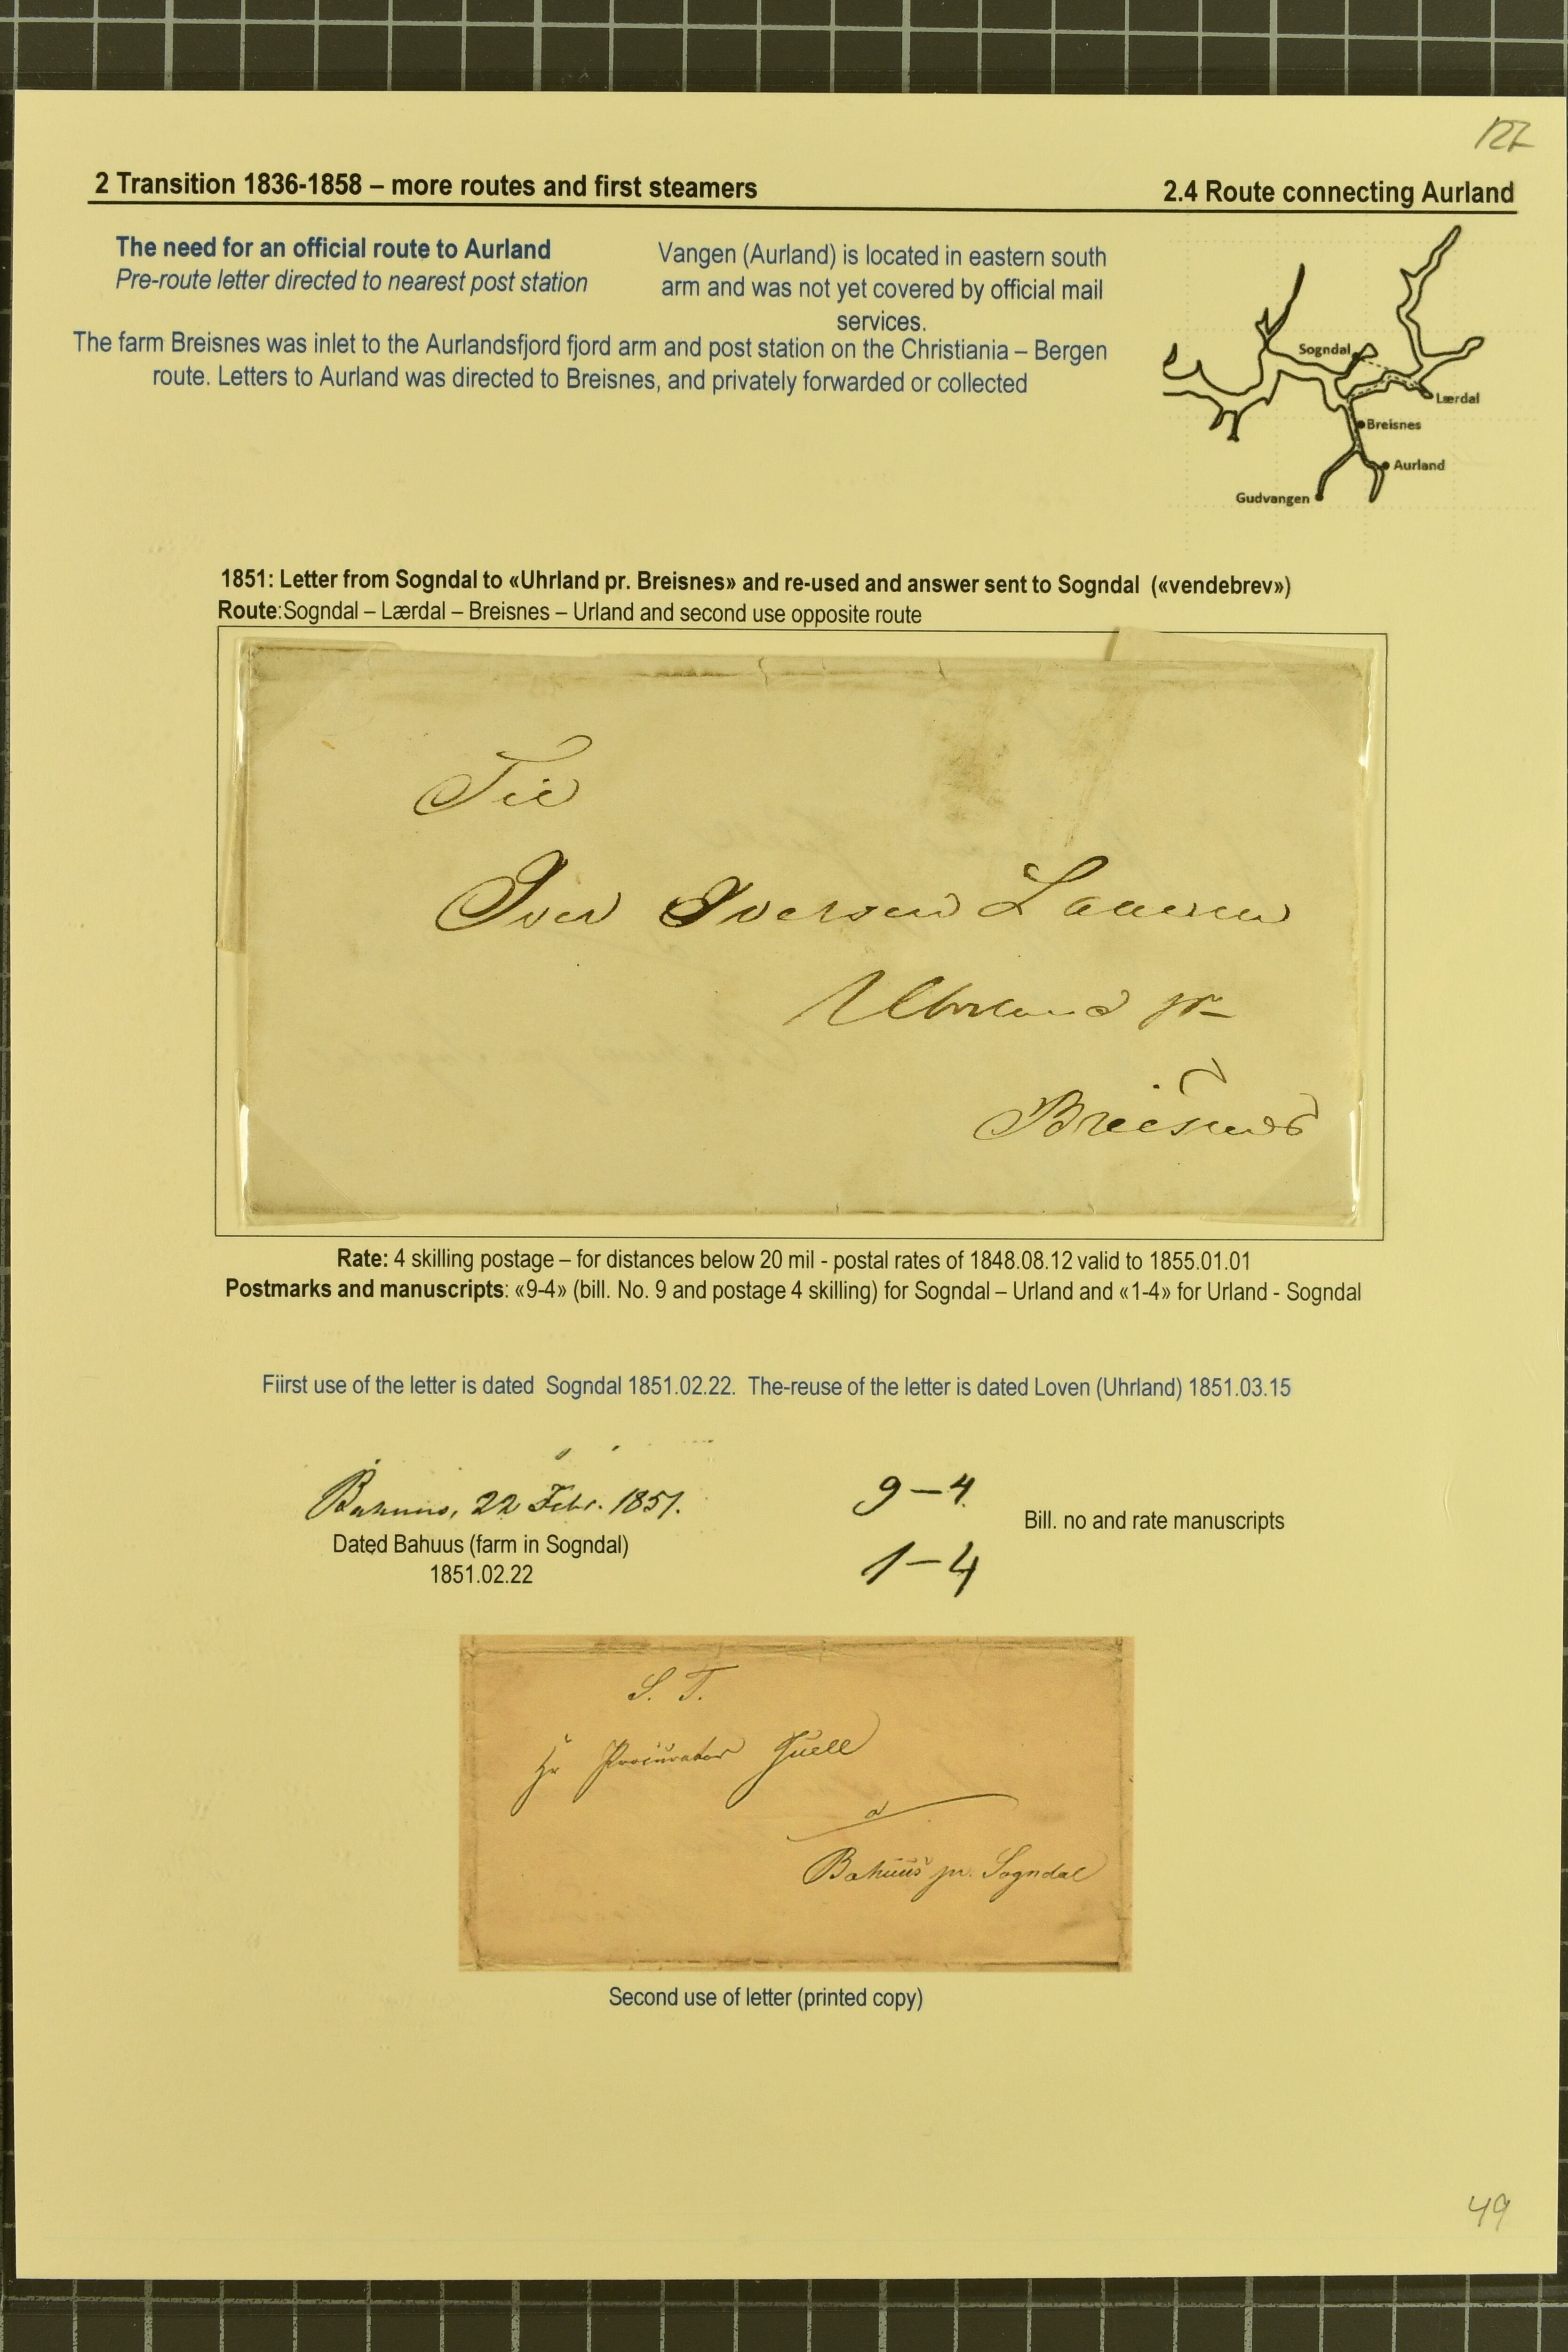 127
2 Transition 1836-1858 – more routes and first steamers
2.4 Route connecting Aurland
The need for an official route to Aurland
Pre-route letter directed to nearest post station
Vangen (Aurland) is located in eastern south
arm and was not yet covered by official mail
services.
The farm Breisnes was inlet to the Aurlandsfjord fjord arm and post station on the Christiania – Bergen
route. Letters to Aurland was directed to Breisnes, and privately forwarded or collected
Sogndal
Lærdal
Breisnes
Aurland
Gudvangen
1851: Letter from Sogndal to «Uhrland pr. Breisnes» and re-used and answer sent to Sogndal («vendebrev»)
Route:Sogndal – Lærdal – Breisnes – Urland and second use opposite route
Til
Iver Iversen
Uhrland pr
Breisnes
Rate: 4 skilling postage – for distances below 20 mil - postal rates of 1848.08.12 valid to 1855.01.01
Postmarks and manuscripts: «9-4» (bill. No. 9 and postage 4 skilling) for Sogndal – Urland and «1-4» for Urland - Sogndal
Fiirst use of the letter is dated Sogndal 1851.02.22. The-reuse of the letter is dated Loven (Uhrland) 1851.03.15
Bahuus, 22 Febr. 1851.
Dated Bahuus (farm in Sogndal)
1851.02.22
9–4
1–4
Bill. no and rate manuscripts
S. T.
Hr Procurator Quell
a
Bahuus pr. Sogndal
Second use of letter (printed copy)
49